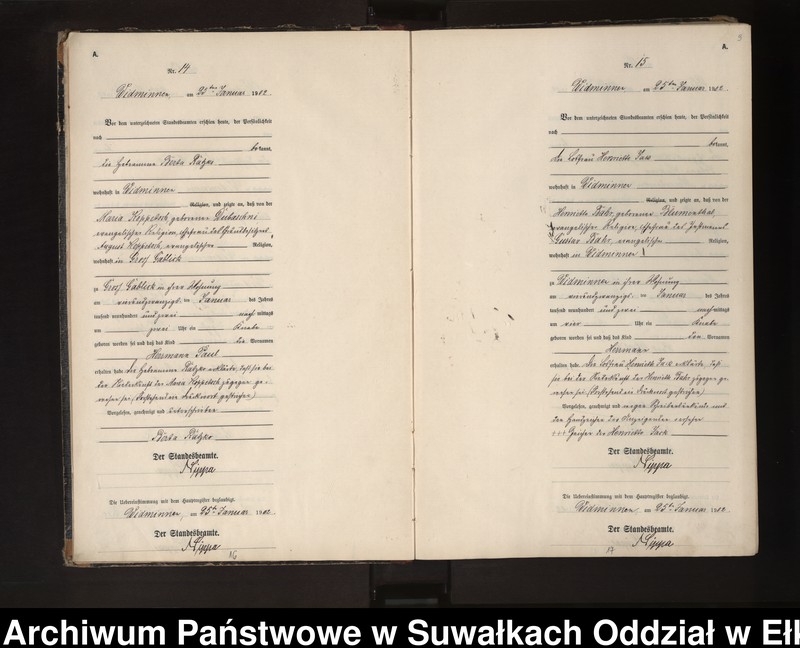 A.
Nr. 14
Widminnen am 25ten Januar 1902
Vor dem unterzeichneten Standesbeamten erschien heute, der Persönlichkeit
nach
bekannt,
die Hebamme Barba
wohnhaft in Widminnen
Religion, und zeigte an, daß von der
Maria Koppetsch geborenen
evangelischer Religion, Ehefrau des
August Koppetsch, evangelischer Religion,
wohnhaft in Gross Gablick
zu Gross Gablick in ihrer Wohnung
am vierundzwanzigsten Januar des Jahres
tausend neunhundert und zwei nachmittags
um zwei Uhr ein Knabe
geboren worden sei und daß das Kind die Vornamen
Hermann Paul
erhalten habe. Die Hebamme erklärte, daß sie bei
der Niederkunft der Maria Koppetsch zugegen ge-
wesen sei. (Vorstehend ein Druckwort gestrichen)
Vorgelesen, genehmigt und unterschrieben
Barba
Der Standesbeamte.
Lippa
Die Uebereinstimmung mit dem Hauptregister beglaubigt.
Widminnen, am 25ten Januar 1902
Der Standesbeamte.
Lippa
16
A.
Nr. 15
Widminnen am 25ten Januar 1902
Vor dem unterzeichneten Standesbeamten erschien heute, der Persönlichkeit
nach
bekannt,
die Losfrau Henriette
wohnhaft in Widminnen
Religion, und zeigte an, daß von der
Henriette geborenen Blumenthal
evangelischer Religion, Ehefrau des
Gustav evangelischer Religion,
wohnhaft in Widminnen
zu Widminnen in ihrer Wohnung
am vierundzwanzigsten Januar des Jahres
tausend neunhundert und zwei nachmittags
um vier Uhr ein Knabe
geboren worden sei und daß das Kind den Vornamen
Hermann
erhalten habe. Die Losfrau Henriette erklärte, daß
sie bei der Niederkunft der Henriette zugegen ge-
wesen sei. (Vorstehend ein Druckwort gestrichen)
Vorgelesen, genehmigt und wegen Schreibensunkunde mit
den Handzeichen der Anzeigenden versehen
+++ Zeichen der Henriette
Der Standesbeamte.
Lippa
Die Uebereinstimmung mit dem Hauptregister beglaubigt.
Widminnen, am 25ten Januar 1902
Der Standesbeamte.
Lippa
17
Archiwum Państwowe w Suwałkach Oddział w Ełk